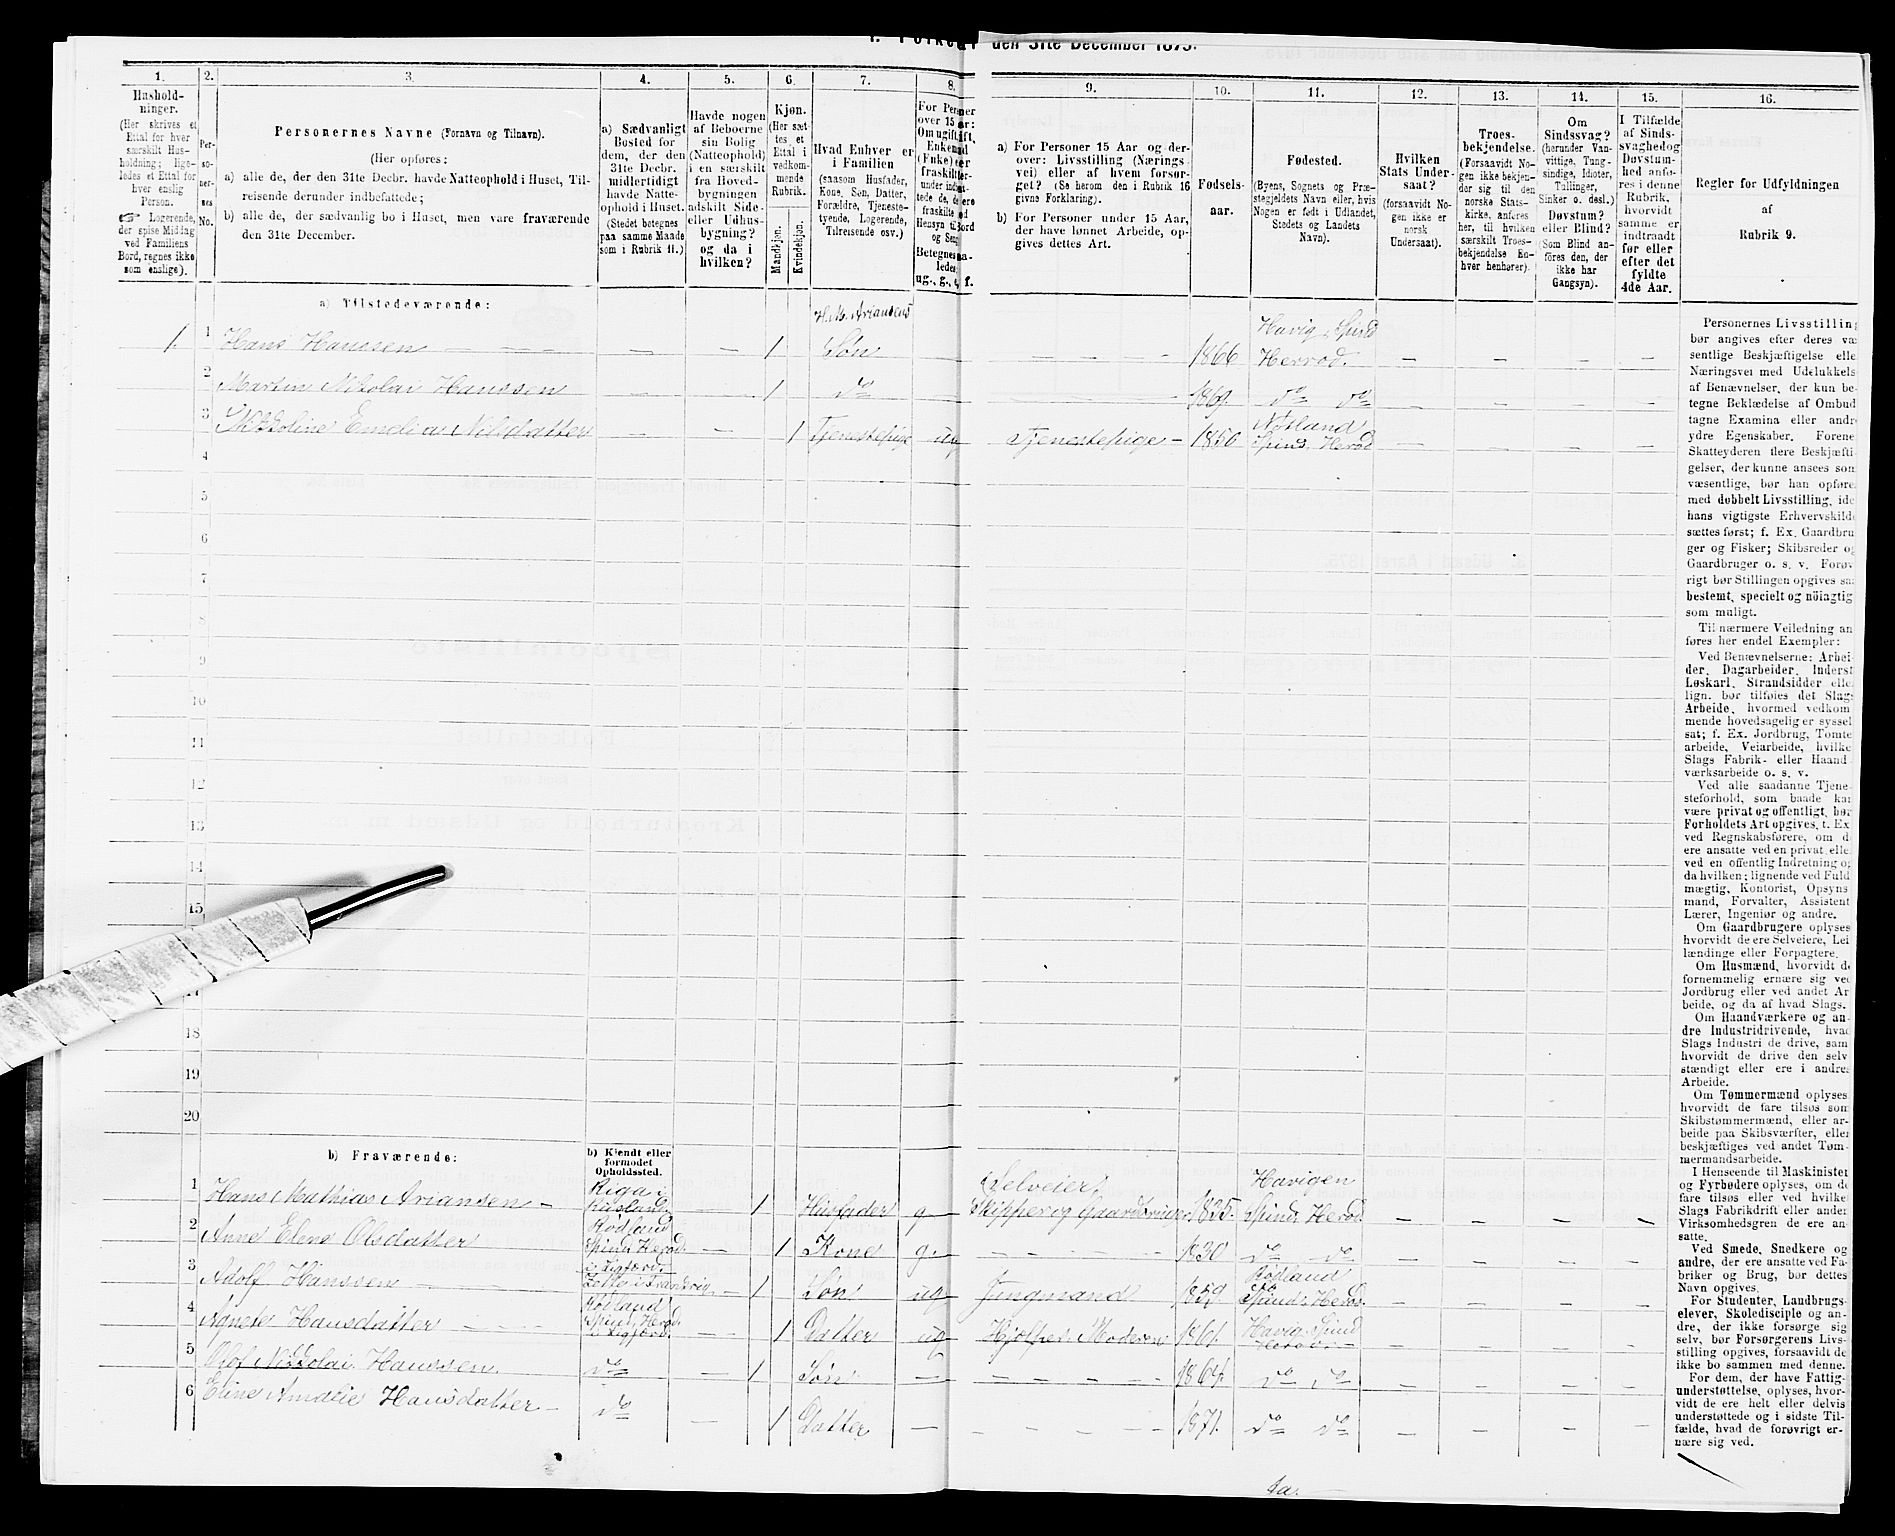 1. Folketal den 31te December 1875.
1.
Hushold-
ninger.
(Her skrives et
Ettal for hver
særskilt Hus-
holdning; lige-
ledes et Ettal for
hver enslig
Person.
☞ Logerende,
der spise Middag
ved Familiens
Bord, regnes ikke
som enslige).
2.
Per-
so-
ner-
nes
No.
3.
Personernes Navne (Fornavn og Tilnavn).
(Her opføres:
a) alle de, der den 31te Decbr. havde Natteophold i Huset, Til-
reisende derunder indbefattede;
b) alle de, der sædvanlig bo i Huset, men vare fraværende
den 31te December.
4.
a) Sædvanligt
Bosted for
dem, der den
31te Decbr.
midlertidigt
havde Natte-
ophold i Huset.
(Stedet betegnes
paa samme Maade
som i Rubrik 11.)
5.
Havde nogen
af Beboerne
sin Bolig
(Natteophold)
i en særskilt
fra Hoved-
bygningen
adskilt Side-
eller Udhus-
bygning?
og da i
hvilken?
6.
Kjøn.
(Her sæt-
tes et
Ettal i
vedkom-
mende
Rubrik.
Mandkjøn.
Kvindekjøn.
7.
Hvad Enhver er
i Familien
(saasom Husfader,
Kone, Søn, Datter,
Forældre, Tjeneste-
tyende, Logerende,
Tilreisende osv.)
8.
For Personer
over 15 Aar:
Om ugift,
Enkemand
(Enke) eller
fraskilt
Betegnes
saaledes:
ug., g., e, f.
9.
a) For Personer 15 Aar og der-
over: Livsstilling (Nærings-
vei) eller af hvem forsør-
get? (Se herom den i Rubrik 16
givne Forklaring).
b) For Personer under 15 Aar,
der have lønnet Arbeide, op-
gives dettes Art.
10.
Fødsels-
aar.
11.
Fødested.
(Byens, Sognets og Præ-
stegjeldets Navn eller, hvis
Nogen er født i Udlandet,
Stedets og Landets
Navn).
12.
Hvilken
Stats Under-
saat?
(forsaavidt No-
gen ikke er
norsk
Undersaat).
13.
Troes-
bekjendelse.
(Forsaavidt No-
gen ikke bekjen-
der sig til den
norske Stats-
kirke, anføres
her, til hvilken
særskilt Troes-
bekjendelse En-
hver henhører).
14.
Om
Sindssvag?
(herunder Van-
vittige, Tung-
sindige, Idioter,
Tullinger,
Sinker o. desl.)
Døvstum?
eller Blind?
(Som Blind an-
føres den, der
ikke har
Gangsyn).
15.
I Tilfælde
af Sinds-
svaghed og
Døvstum-
hed anfø-
res i denne
Rubrik,
hvorvidt
samme er
indtraadt
før eller
efter det
fyldte
4de Aar.
16.
Regler for Udfyldningen
af
Rubrik 9.
a) Tilstedeværende:
H. M. Ariansens
1. 1 Hans Hanssen — — 1 Søn — — 1866 Havig, Spind Herrod. — — — —
2 Martin Nikolai Hanssen — — 1 do — — 1869. do do — — — —
3 Nikoline Emelia Nilsdatter — — 1 Tjenestepige ug Tjenestepige — 1850 Spind, Herod — — — —
4
5
6
7
8
9
10
11
12
13
14
15
17
18
19
20
b) Fraværende:
b) Kjendt eller
formodet
Opholdssted.
1 Hans Mathias Ariansen — Riga i Rusland — 1 Husfader g (Selveier) Skipper og Gaardbruger 1835. Havigen Spind, Herod — — — —
2 Anne Elene Olsdatter Rødland Spind, Herod. — 1 Kone g. — 1830 do do — — — —
3 Adolf Hanssen Zette i Frankrig — 1 Søn ug Jungmand 1859. Rødland Spind, Herod. — — — —
4 Agnete Hansdatter Rødland Spind, Herod — 1 Datter ug Hjælper Moderen 1861. Havig, Spind Herod — — — —
5 Olof Nikolai Hanssen. do — 1 Søn — — 1864. do do — — — —
6 Eline Amalie Hansdatter — do — 1 Datter — — 1871. do do — — — —
Personernes Livsstilling
bør angives efter deres væ-
sentlige Beskjæftigelse eller
Næringsvei med Udelukkelse
af Benævnelser, der kun be-
tegne Beklædelse af Ombud,
tagne Examina eller andre
ydre Egenskaber. Forener
Skatteyderen flere Beskjæfti-
gelser, der kunne ansees som
væsentlige, bør han opføres
med dobbelt Livsstilling, idet
hans vigtigste Erhvervskilde
sættes først; f. Ex. Gaardbru-
ger og Fisker; Skibsreder og
Gaardbruger o. s. v. Forøv-
rigt bør Stillingen opgives saa
bestemt, specielt og nöiagtigt
som muligt.
Til nærmere Veiledning an-
føres her endel Exempler:
Ved Benævnelserne: Arbei-
der, Dagarbeider, Inderst,
Løskarl, Strandsidder eller
lign. bør tilføies det Slags
Arbeide, hvormed vedkom-
mende hovedsagelig er syssel-
sat; f. Ex. Jordbrug, Tomte-
arbeide, Veiarbeide, hvilket
Slags Fabrik- eller Haand-
værksarbeide o. s. v.
Ved alle saadanne Tjene-
steforhold, som baade kan
være privat og offentligt, bør
Forholdets Art opgives, t. Ex.
ved Regnskabsførere, om de
ere ansatte ved en privat eller
ved en offentlig Indretning og
da hvilken; lignende ved Fuld-
mægtig, Kontorist, Opsyns-
mand, Forvalter, Assistent,
Lærer, Ingeniør og andre.
Om Gaardbrugere oplyses,
hvorvidt de ere Selveiere, Lei-
lændinge eller Forpagtere.
Om Husmænd, hvorvidt de
fornemmelig ernære sig ved
Jordbrug eller ved andet Ar-
beide, og da af hvad Slags.
Om Haandværkere og an-
dre Industridrivende, hvad
Slags Industri de drive, samt
hvorvidt de drive den selv-
stændigt eller ere i andres
Arbeide.
Om Tømmermænd oplyses,
hvorvidt de fare tilsøs som
Skibstømmermænd, eller ar-
beide paa Skibsværfter, eller
beskjæftiges ved andet Tøm-
mermandsarbeide.
I Henseende til Maskinister
og Fyrbødere oplyses, om de
fare tilsøs eller ved hvilket
Slags Fabrikdrift eller anden
Virksomhedsgren de ere an-
satte.
Ved Smede, Snedkere og
andre, der ere ansatte ved Fa-
briker og Brug, bør dettes
Navn opgives.
For Studenter, Landbrugs-
elever, Skoledisciple og an-
dre, der ikke forsørge sig
selv, bør Forsørgerens Livs-
stilling opgives, forsaavidt de
ikke bo sammen med denne.
For dem, der have Fattig-
understøttelse, oplyses, hvor-
vidt de ere helt eller delvis
understøttede og i sidste Til-
fælde, hvad de forøvrigt er-
nære sig ved.